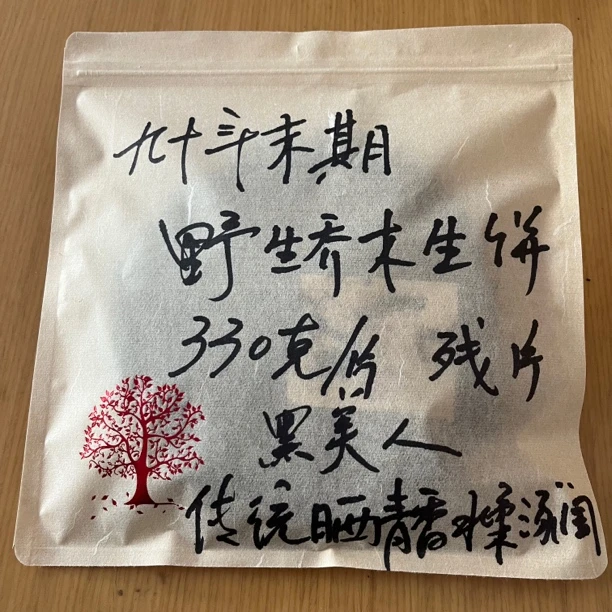 九十年末期
野生乔木生饼
330克/片 残片
黑美人
传统晒青香水柔滋润